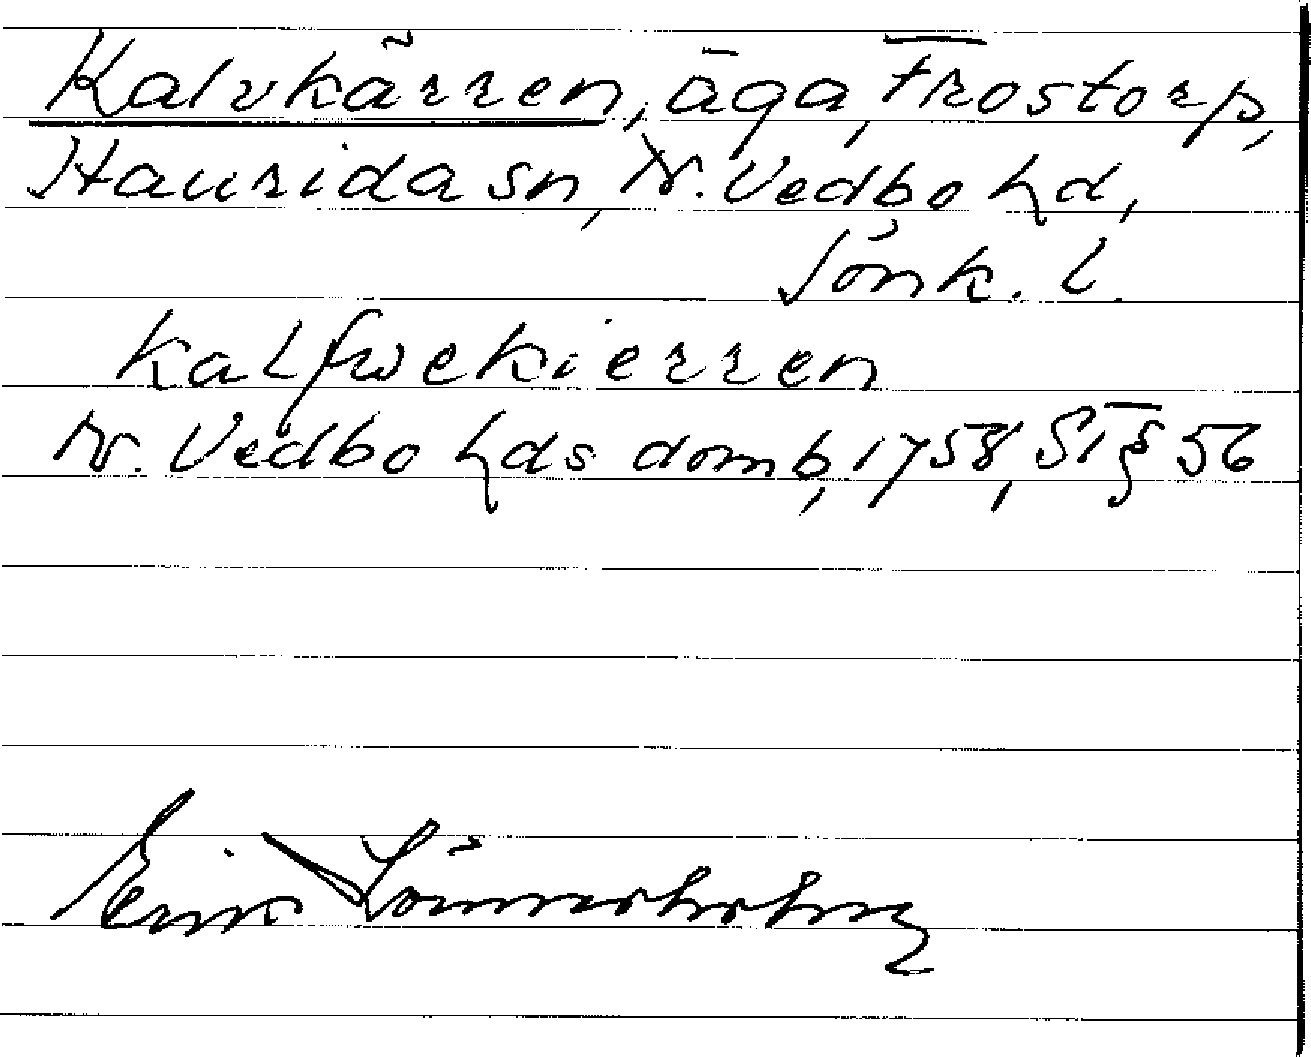 Kalvkärren, äga, Frostorp,
Haurida sn, N. Vedbo hd,
Jönk. l.
Kalfwekierren
N. Vedbo hds domb, 1758, ST § 56
Erik Lönnerholm